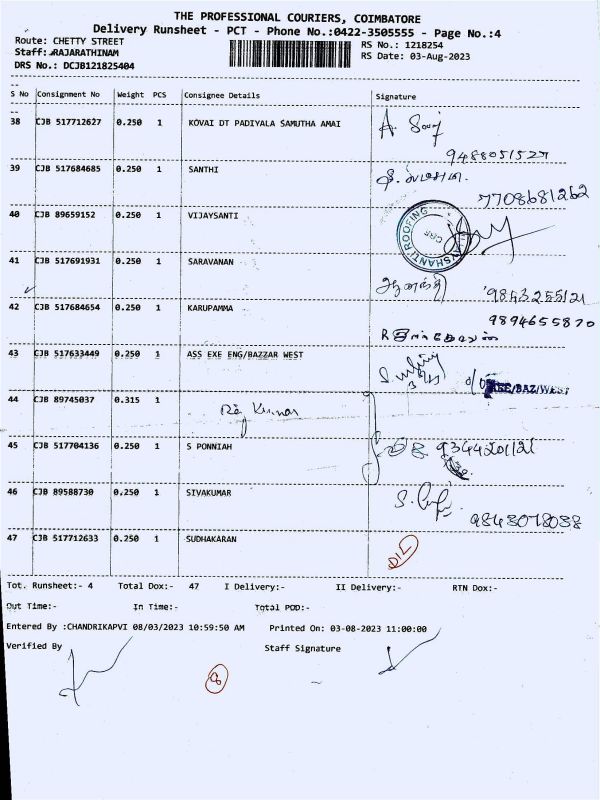 THE PROFESSIONAL COURIERS, COIMBATORE
Delivery Runsheet - PCT - Phone No.:0422-3505555 - Page No.:4
Route: CHETTY STREET
RS No.: 1218254
Staff: RAJARATHINAM
RS Date: 03-Aug-2023
DRS No.: DCJB121825404
S No Consignment No Weight PCS Consignee Details Signature
38 CJB 517712627 0.250 1 KOVAI DT PADIYALA SAMUTHA AMAI
9488051527
39 CJB 517684685 0.250 1 SANTHI
7708681262
40 CJB 89659152 0.250 1 VIJAYSANTI
ROOFING
41 CJB 517691931 0.250 1 SARAVANAN
9843255121
42 CJB 517684654 0.250 1 KARUPAMMA
9894655870
43 CJB 517633449 0.250 1 ASS EXE ENG/BAZZAR WEST
/BAZ/WEST
44 CJB 89745037 0.315 1 Raj Kumar
45 CJB 517704136 0.250 1 S PONNIAH
9344201121
46 CJB 89588730 0.250 1 SIVAKUMAR
9843078038
47 CJB 517712633 0.250 1 SUDHAKARAN
D/L
Tot. Runsheet:- 4 Total Dox:- 47 I Delivery:- II Delivery:- RTN Dox:-
Out Time:- In Time:- Total POD:-
Entered By :CHANDRIKAPVI 08/03/2023 10:59:50 AM Printed On: 03-08-2023 11:00:00
Verified By Staff Signature
8